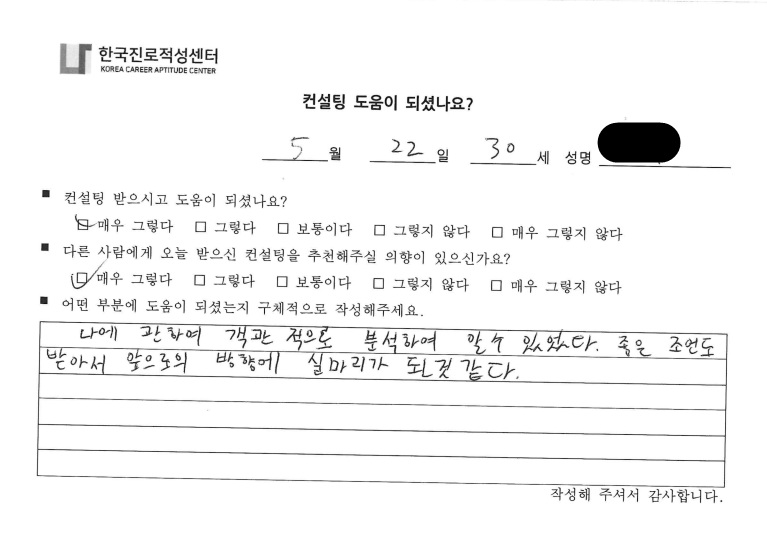 한국진로적성센터
KOREA CAREER APTITUDE CENTER
컨설팅 도움이 되셨나요?
5 월 22 일 30 세 성명
■ 컨설팅 받으시고 도움이 되셨나요?
☑ 매우 그렇다 □ 그렇다 □ 보통이다 □ 그렇지 않다 □ 매우 그렇지 않다
■ 다른 사람에게 오늘 받으신 컨설팅을 추천해주실 의향이 있으신가요?
☑ 매우 그렇다 □ 그렇다 □ 보통이다 □ 그렇지 않다 □ 매우 그렇지 않다
■ 어떤 부분에 도움이 되셨는지 구체적으로 작성해주세요.
나에 관하여 객관적으로 분석하여 알수 있었다. 좋은 조언도
받아서 앞으로의 방향에 실마리가 된것 같다.
작성해 주셔서 감사합니다.